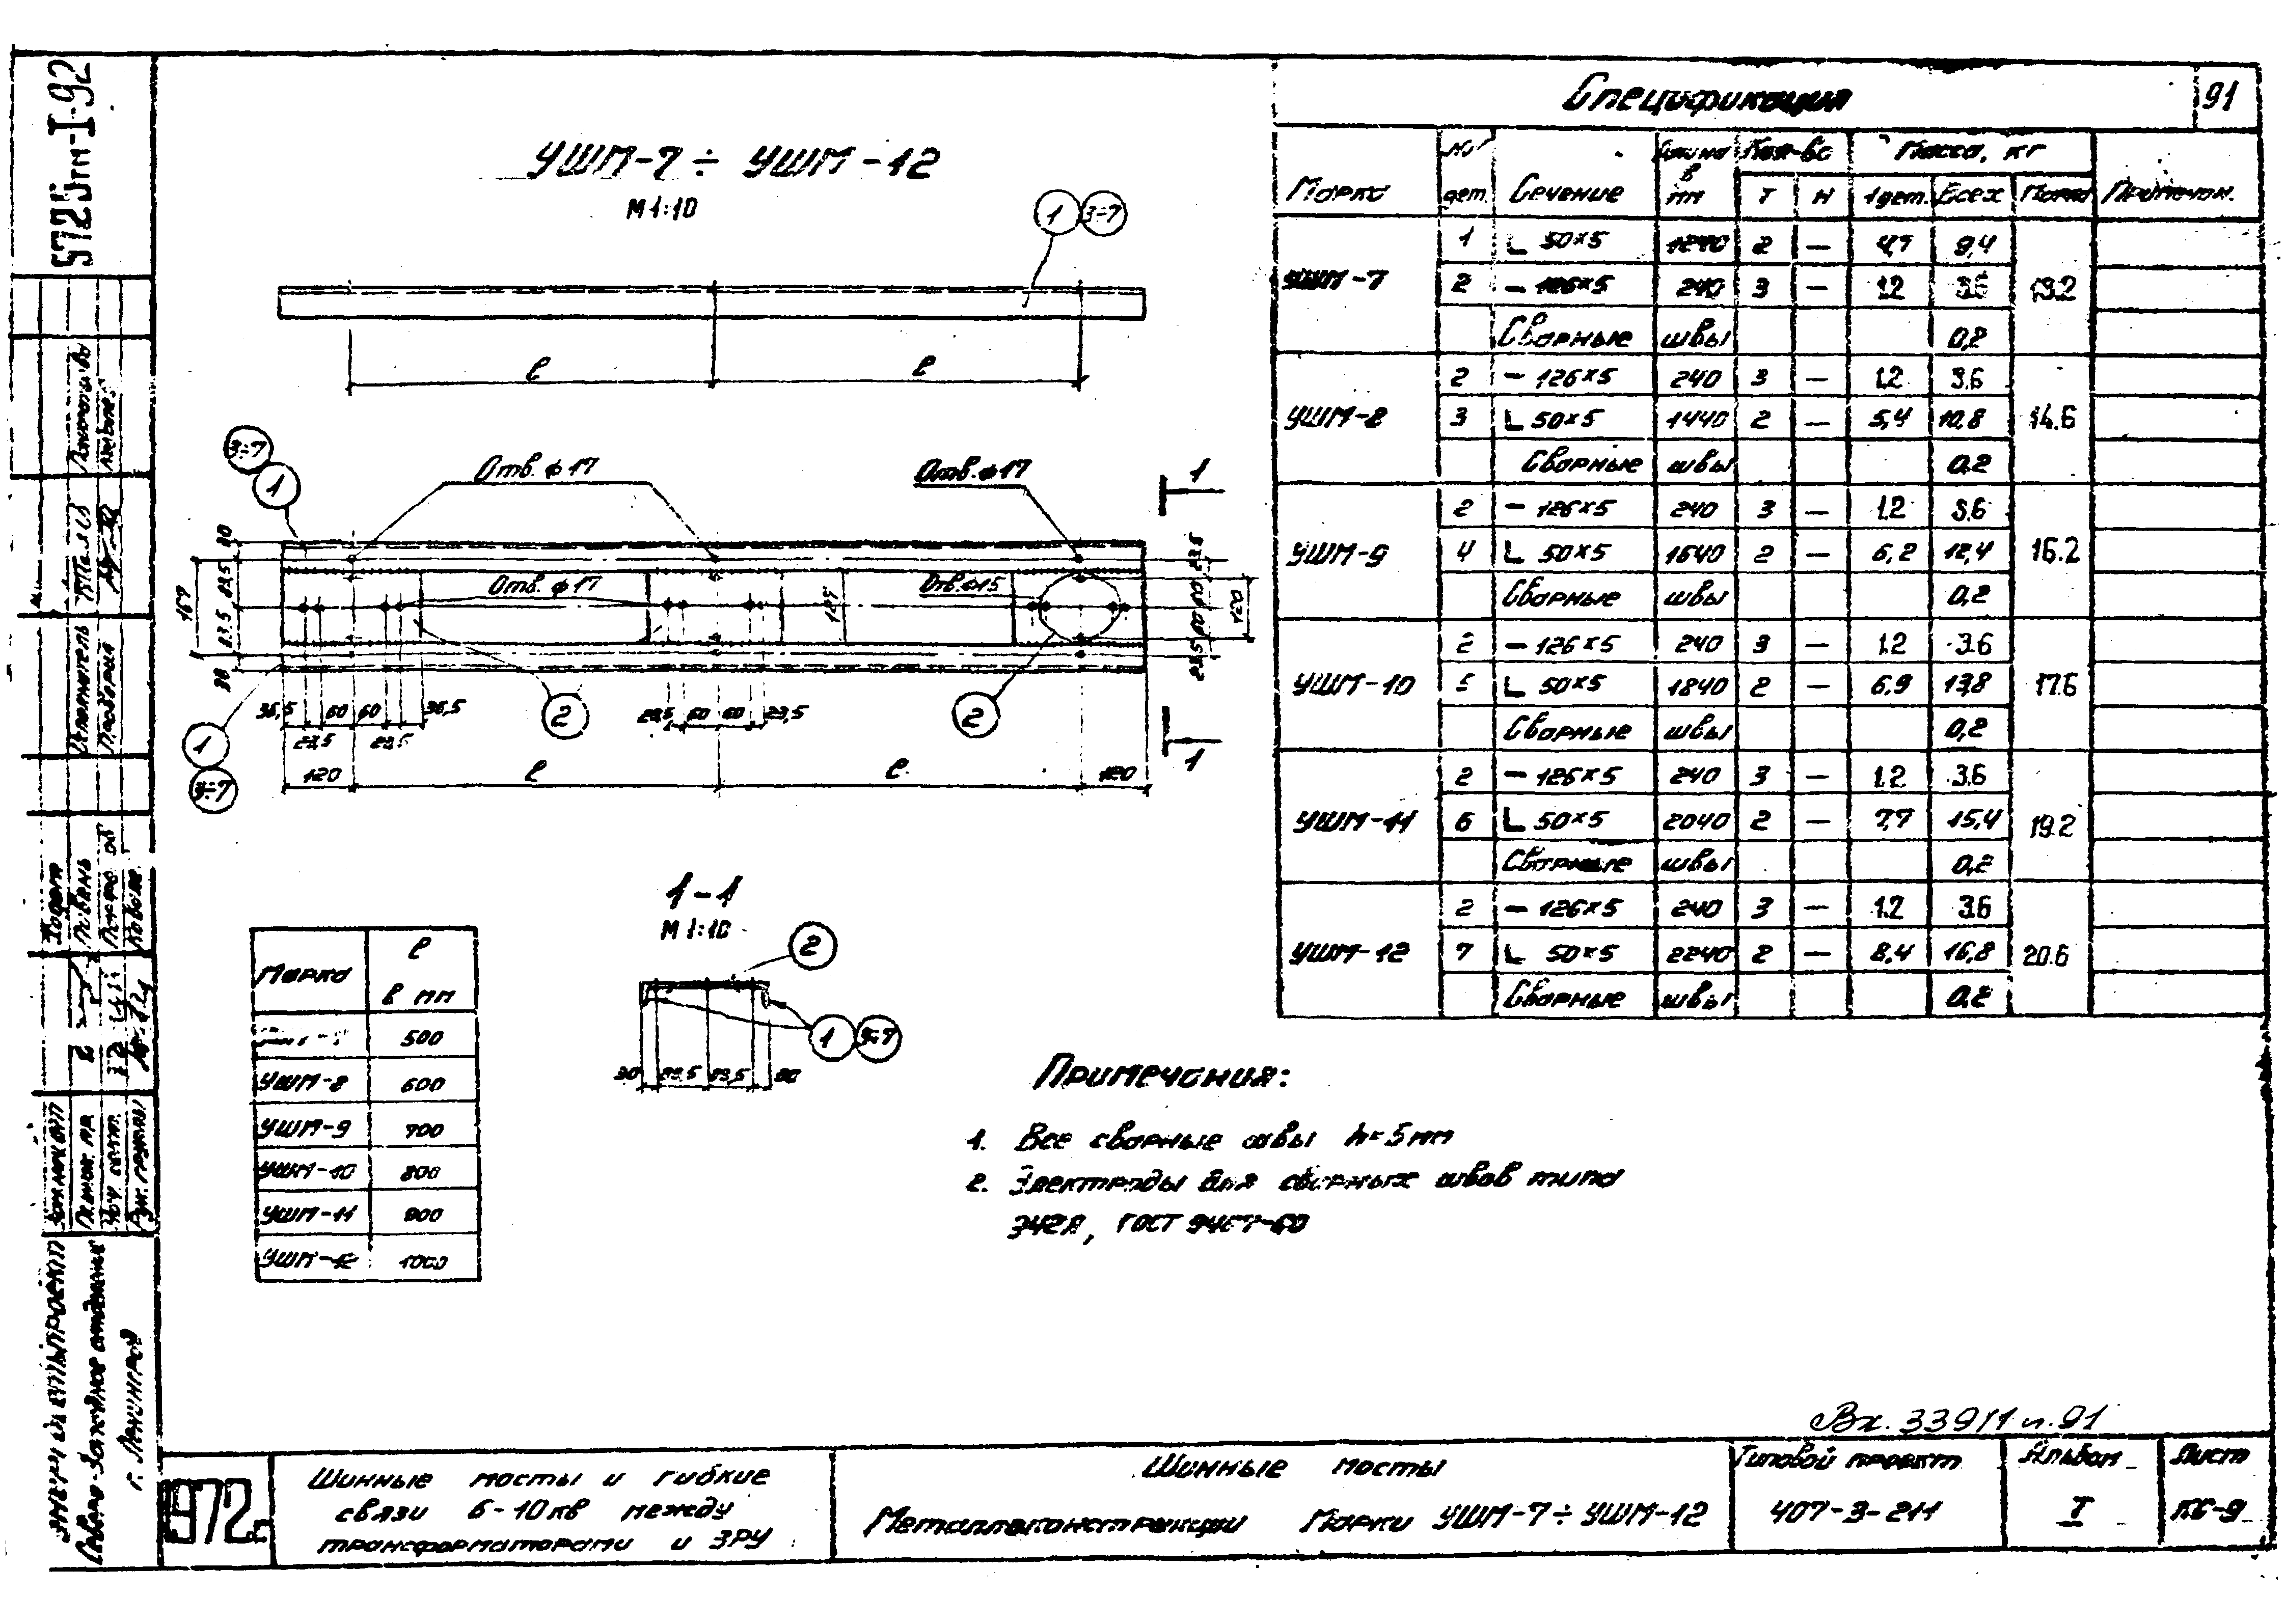 5725тм-I-92
91
УШМ-7 ÷ УШМ-12
М 1:10
1 3÷7
ℓ ℓ
3÷7
1
Отв. ф 17
Отв. ф 17
1
Отв. ф 17
Отв. ф 15
167
127
36,5 60 60 36,5
23,5 23,5
23,5 60 60 23,5
2
2
1
3÷7
1
120 ℓ ℓ 120
1-1
М 1:10
2
1 3÷7
30 83,5 83,5 30
Марка ℓ в мм
500
УШМ-8 600
УШМ-9 700
УШМ-10 800
УШМ-11 900
УШМ-12 1000
Спецификация
Марка № дет. Сечение Длина в мм Кол-во Т Н Масса, кг 1 дет. Всех Марки Примечан.
УШМ-7 13.2
1 L 50×5 1240 2 — 4,7 9,4
2 — 126×5 240 3 — 1.2 3.6
Сварные швы 0,2
УШМ-8 14.6
2 — 126×5 240 3 — 1.2 3.6
3 L 50×5 1440 2 — 5,4 10,8
Сварные швы 0,2
УШМ-9 16.2
2 — 126×5 240 3 — 1.2 3.6
4 L 50×5 1640 2 — 6,2 12,4
Сварные швы 0,2
УШМ-10 17.6
2 — 126×5 240 3 — 1.2 3.6
5 L 50×5 1840 2 — 6,9 13,8
Сварные швы 0,2
УШМ-11 19.2
2 — 126×5 240 3 — 1.2 3.6
6 L 50×5 2040 2 — 7,7 15,4
Сварные швы 0,2
УШМ-12 20.6
2 — 126×5 240 3 — 1.2 3.6
7 L 50×5 2240 2 — 8,4 16,8
Сварные швы 0,2
Примечания:
1. Все сварные швы h=5 мм
2. Электроды для сварных швов типа
Э42А, ГОСТ 9467-60
Вх. 339/1 л. 91
Исполнитель
Проверил
Северо-Западное отделение
г. Ленинград
1972г.
Шинные мосты и гибкие
связи 6-10кв между
трансформаторами и ЗРУ
Шинные мосты
Металлоконструкции Марки УШМ-7÷УШМ-12
Типовой проект
407-3-211
Альбом
I
Лист
КБ-9